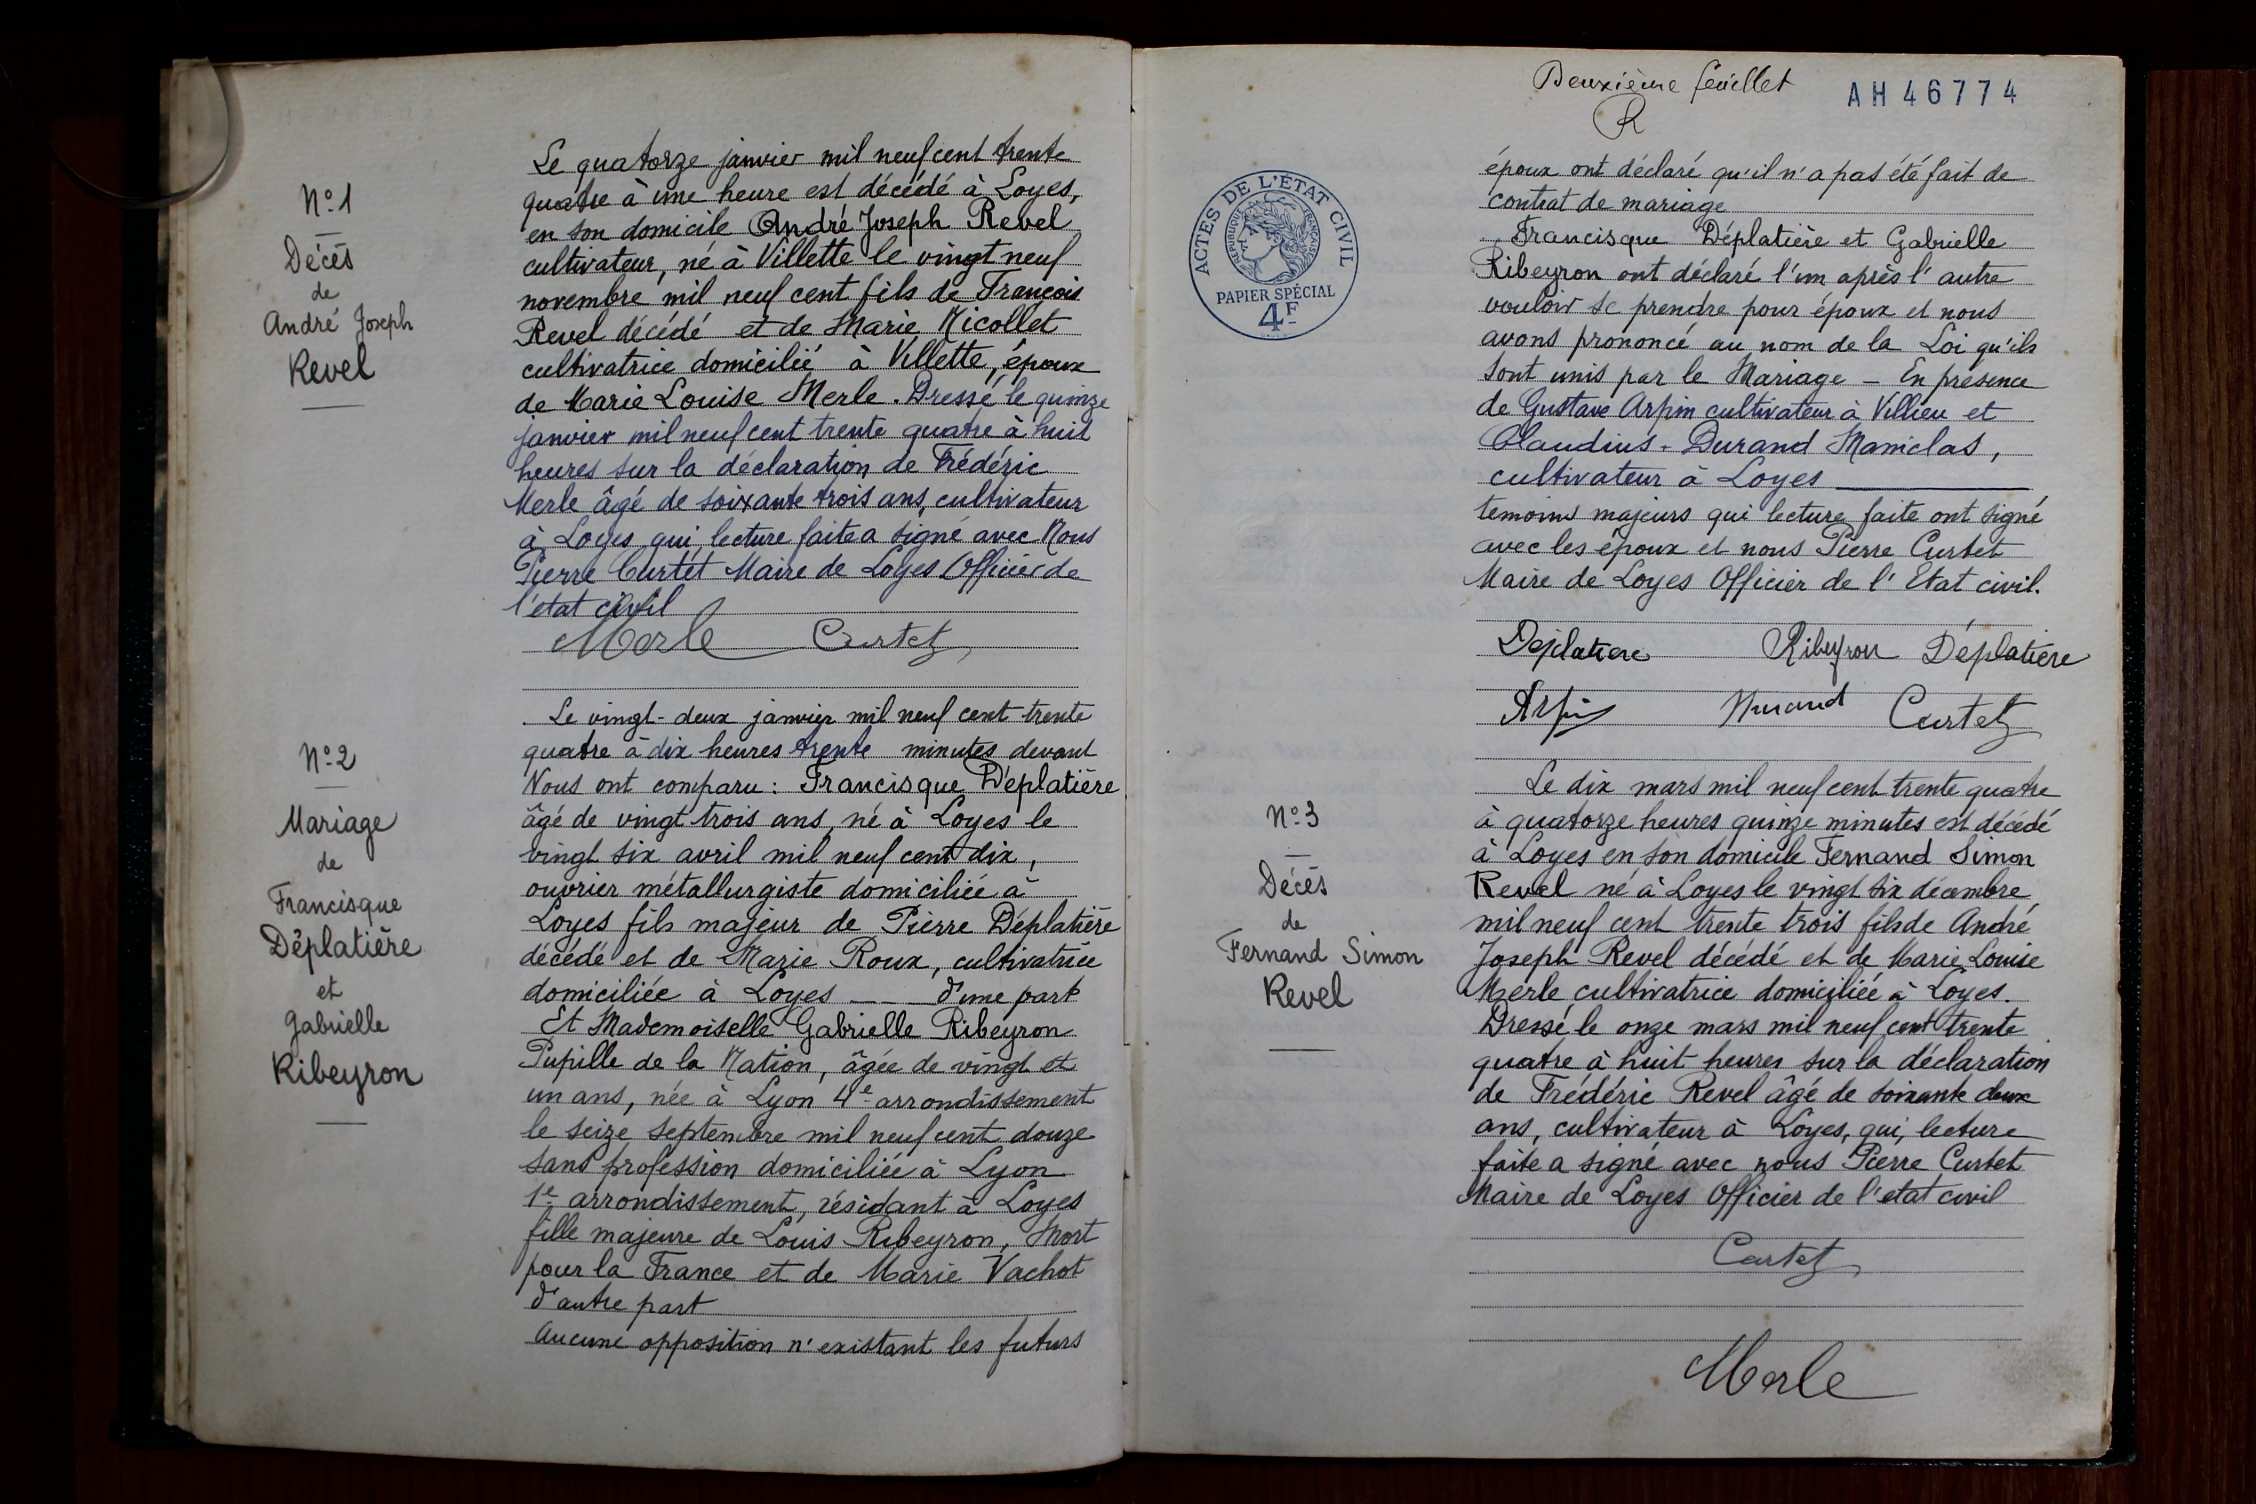 N° 1
Décès
de
André Joseph
Revel
Le quatorze janvier mil neuf cent trente
quatre à une heure est décédé à Loyes,
en son domicile André Joseph Revel
cultivateur, né à Villette le vingt neuf
novembre mil neuf cent fils de François
Revel décédé et de Marie Nicollet
cultivatrice domicilié à Villette, époux
de Marie Louise Merle. Dressé le quinze
janvier mil neuf cent trente quatre à huit
heures sur la déclaration de Frédéric
Merle âgé de soixante trois ans, cultivateur
à Loyes qui, lecture faite a signé avec Nous
Pierre Curtet Maire de Loyes Officier de
l'état civil
Merle Curtet
N° 2
Mariage
de
Francisque
Déplatière
et
Gabrielle
Ribeyron
Le vingt-deux janvier mil neuf cent trente
quatre à dix heures trente minutes devant
Nous ont comparu : Francisque Déplatière
âgé de vingt trois ans, né à Loyes le
vingt six avril mil neuf cent dix,
ouvrier métallurgiste domiciliée à
Loyes fils majeur de Pierre Déplatière
décédé et de Marie Roux, cultivatrice
domiciliée à Loyes — — d'une part
Et Mademoiselle Gabrielle Ribeyron
Pupille de la Nation, âgée de vingt et
un ans, née à Lyon 4e arrondissement
le seize septembre mil neuf cent douze
sans profession domiciliée à Lyon
1e arrondissement, résidant à Loyes
fille majeure de Louis Ribeyron, Mort
pour la France et de Marie Vachot
d'autre part
Aucune opposition n'existant les futurs
Deuxième feuillet
R
AH46774
ACTES DE L'ÉTAT CIVIL
RÉPUBLIQUE FRANÇAISE
PAPIER SPÉCIAL
4F
époux ont déclaré qu'il n'a pas été fait de
contrat de mariage
Francisque Déplatière et Gabrielle
Ribeyron ont déclaré l'un après l'autre
vouloir se prendre pour époux et nous
avons prononcé au nom de la Loi qu'ils
sont unis par le Mariage — En présence
de Gustave Arpin cultivateur à Villieu et
Claudius-Durand Maniclas,
cultivateur à Loyes
temoins majeurs qui lecture faite ont signé
avec les époux et nous Pierre Curtet
Maire de Loyes Officier de l'Etat civil.
Déplatière Ribeyron Déplatière
Arpin Durand Curtet
N° 3
Décès
de
Fernand Simon
Revel
Le dix mars mil neuf cent trente quatre
à quatorze heures quinze minutes est décédé
à Loyes en son domicile Fernand Simon
Revel né à Loyes le vingt six décembre
mil neuf cent trente trois fils de André
Joseph Revel décédé et de Marie Louise
Merle cultivatrice domiciliée à Loyes.
Dressé le onze mars mil neuf cent trente
quatre à huit heures sur la déclaration
de Frédéric Revel âgé de soixante deux
ans, cultivateur à Loyes, qui, lecture
faite a signé avec nous Pierre Curtet
Maire de Loyes Officier de l'etat civil
Curtet
Merle